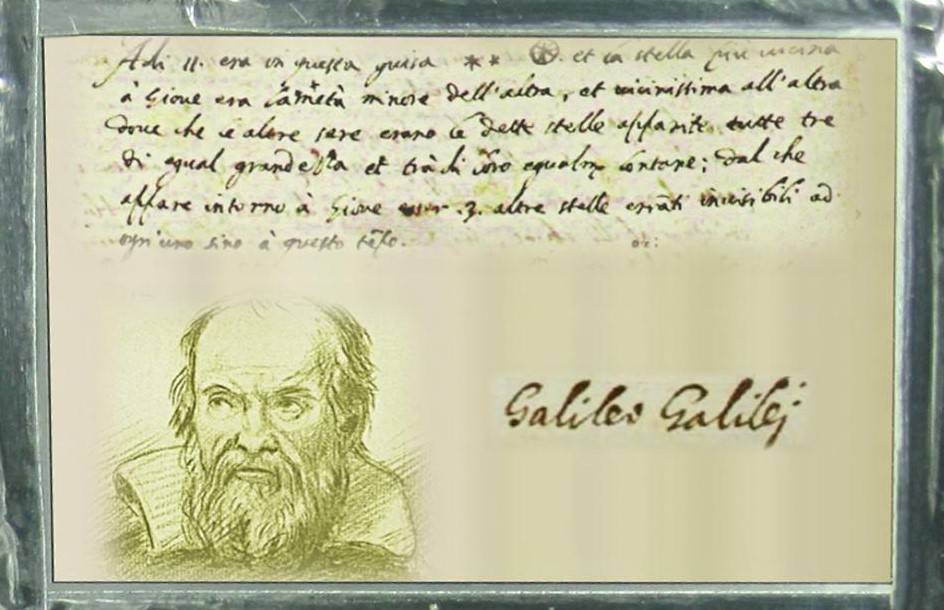 Adi 11. era in questa guisa ** et la stella più uicina
à Gioue era la metà minore dell'altra, et uicinissima all'altra
doue che le altre sere erano le dette stelle apparite tutte tre
di egual grandezza et trà di loro egualm lontane; dal che
appare intorno à Gioue esser .3. altre stelle erranti inuisibili ad
ogn'uno sino à questo tẽpo.
Galileo Galilej